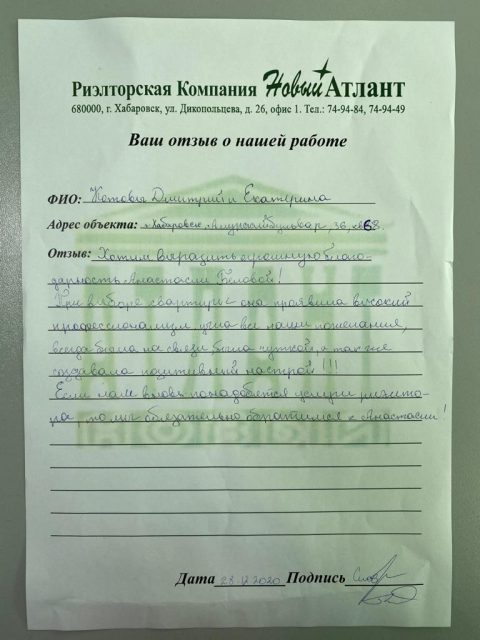 Риэлторская Компания Новый Атлант
680000, г. Хабаровск, ул. Дикопольцева, д. 26, офис 1. Тел.: 74-94-84, 74-94-49
Ваш отзыв о нашей работе
ФИО: Котовы Дмитрий и Екатерина
Адрес объекта: г. Хабаровск Амурский бульвар, 36, кв 68.
Отзыв: Хотим выразить огромную благо-
дарность Анастасии Беловой!
При выборе квартиры она проявила высокий
профессионализм, учла все наши пожелания,
всегда была на связи, была чуткой, а так же
создавала позитивный настрой!!!
Если нам вновь понадобятся услуги риэлто-
ра, то мы обязательно обратимся к Анастасии!
Дата 28.12.2020 Подпись